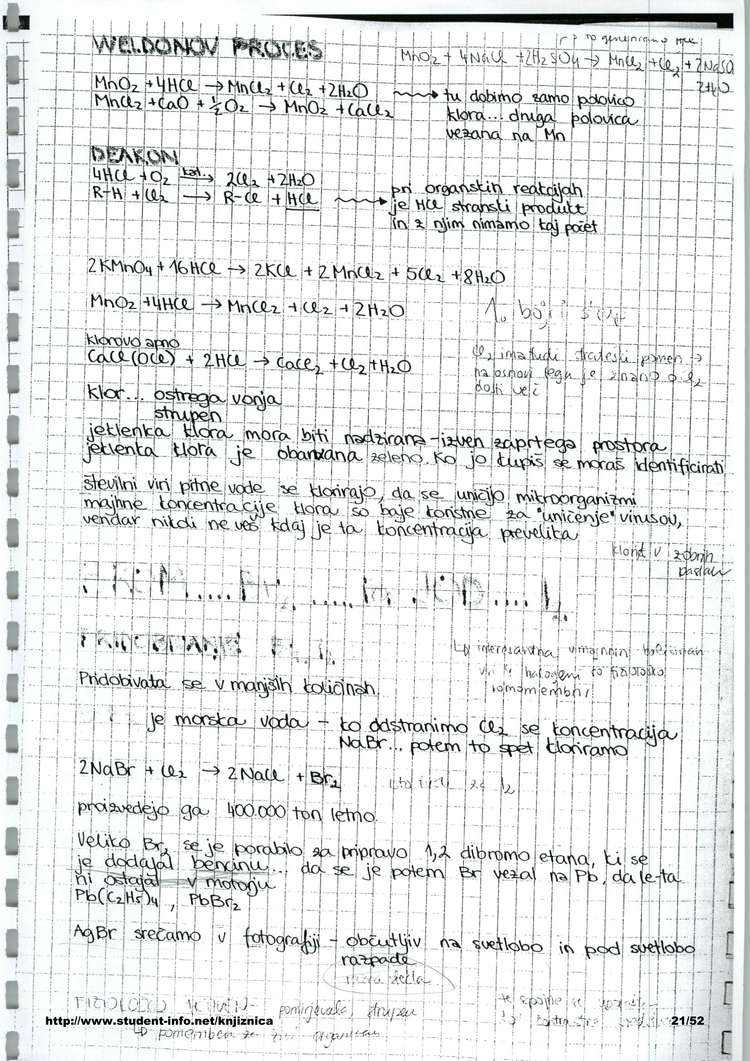 WELDONOV PROCES
MnO2 + 4NaCl + 2H2SO4 → MnCl2 + Cl2 + 2NaSO
2H2O
MnO2 + 4HCl → MnCl2 + Cl2 + 2H2O
MnCl2 + CaO + ½O2 → MnO2 + CaCl2
tu dobimo samo polovico
klora... druga polovica
vezana na Mn
DEAKON
4HCl + O2 kat.→ 2Cl2 + 2H2O
R-H + Cl2 → R-Cl + HCl
pri organskih reakcijah
je HCl stranski produkt
in z njim nimamo kaj počet
2KMnO4 + 16HCl → 2KCl + 2MnCl2 + 5Cl2 + 8H2O
MnO2 + 4HCl → MnCl2 + Cl2 + 2H2O
klorovo apno
CaCl(OCl) + 2HCl → CaCl2 + Cl2 + H2O
Cl2 ima tudi strateški pomen →
na osnovi tega je znano o Cl2
dosti več
klor... ostrega vonja
strupen
jeklenka klora mora biti nadzirana – izven zaprtega prostora
jeklenka klora je obarvana zeleno. Ko jo kupiš se moraš identificirati
številni viri pitne vode se klorirajo, da se uničijo mikroorganizmi
majhne koncentracije klora so baje koristne za "uničenje" virusov,
vendar nikdi ne veš kdaj je ta koncentracija prevelika
klorid v zobnih
pastah
BROM.....Br2.....in JOD....I2
PRIDOBIVANJE
Pridobivata se v manjših količinah
je morska voda – ko odstranimo Cl2 se koncentracija
NaBr... potem to spet kloriramo
2NaBr + Cl2 → 2NaCl + Br2
proizvedejo ga 400.000 ton letno
Veliko Br2 se je porabilo za pripravo 1,2 dibromo etana, ki se
je dodajal bencinu... da se je potem Br vezal na Pb, da le-ta
ni ostajal v motorju
Pb(C2H5)4, PbBr2
AgBr srečamo v fotografiji – občutljiv na svetlobo in pod svetlobo
razpade
pomirjevala, strupen
pomemben za
http://www.student-info.net/knjiznica
21/52